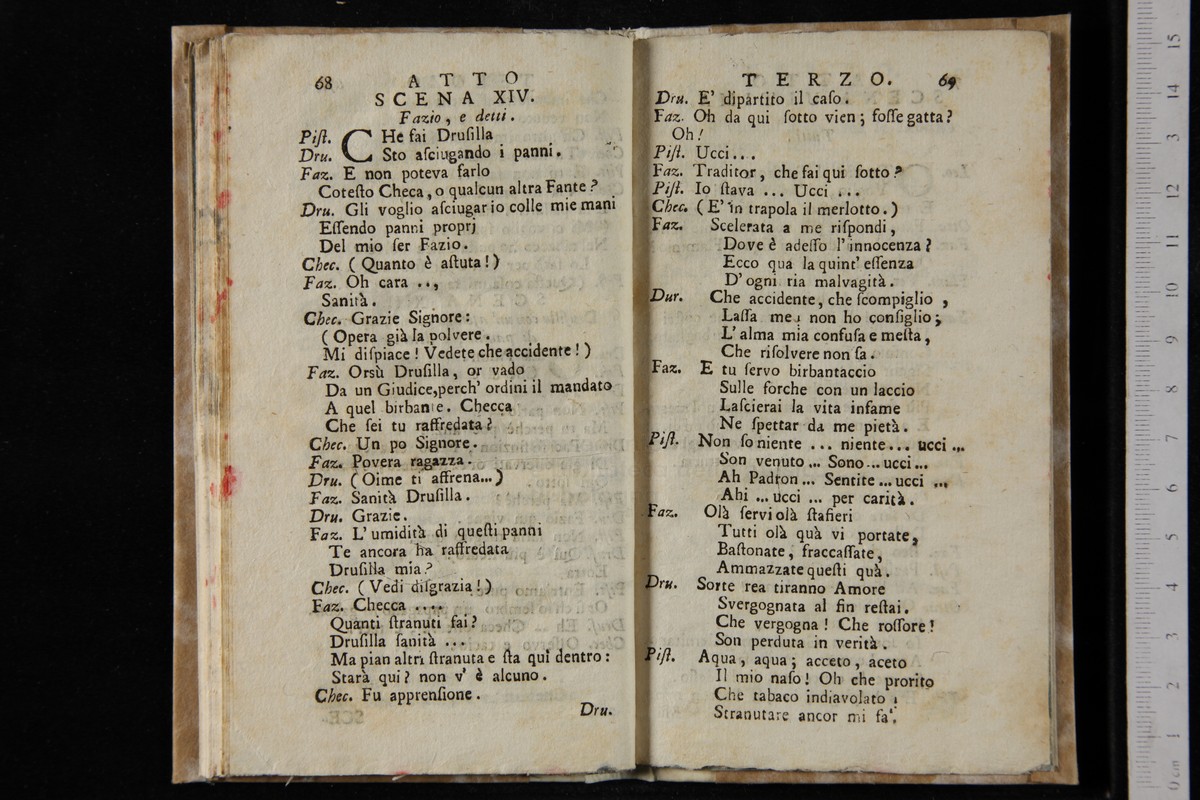 68 ATTO
SCENA XIV.
Fazio, e detti.
Piſt. CHe fai Druſilla
Dru. Sto aſciugando i panni.
Faz. E non poteva farlo
Coteſto Checa, o qualcun altra Fante?
Dru. Gli voglio aſciugar io colle mie mani
Eſſendo panni proprj
Del mio ſer Fazio.
Chec. (Quanto è aſtuta!)
Faz. Oh cara ..,
Sanità.
Chec. Grazie Signore:
(Opera già la polvere.
Mi diſpiace! Vedete che accidente!)
Faz. Orsù Druſilla, or vado
Da un Giudice,perch' ordini il mandato
A quel birbante. Checca
Che ſei tu raffredata?
Chec. Un po Signore.
Faz. Povera ragazza.
Dru. (Oime ti affrena...)
Faz. Sanità Druſilla.
Dru. Grazie.
Faz. L'umidità di queſti panni
Te ancora ha raffredata
Druſilla mia?
Chec. (Vedi diſgrazia!)
Faz. Checca ....
Quanti ſtranuti fai?
Druſilla ſanità ...
Ma pian altri ſtranuta e ſta quì dentro:
Starà qui? non v' è alcuno.
Chec. Fu apprenſione.
Dru.
TERZO. 69
Dru. E' dipartito il caſo.
Faz. Oh da qui ſotto vien; foſſe gatta?
Oh!
Piſt. Ucci...
Faz. Traditor, che fai qui ſotto?
Piſt. Io ſtava ... Ucci ...
Chec. (E' in trapola il merlotto.)
Faz. Scelerata a me riſpondi,
Dove è adeſſo l'innocenza?
Ecco qua la quint' eſſenza
D' ogni ria malvagità.
Dur. Che accidente, che ſcompiglio,
Laſſa me; non ho conſiglio;
L'alma mia confuſa e meſta,
Che riſolvere non ſa.
Faz. E tu ſervo birbantaccio
Sulle forche con un laccio
Laſcierai la vita infame
Ne ſpettar da me pietà.
Piſt. Non ſo niente ... niente... ucci ...
Son venuto ... Sono ... ucci ...
Ah Padron ... Sentite ... ucci ...
Ahi ... ucci ... per carità.
Faz. Olà ſervi olà ſtafieri
Tutti olà quà vi portate,
Baſtonate, fraccaſſate,
Ammazzate queſti quà.
Dru. Sorte rea tiranno Amore
Svergognata al fin reſtai.
Che vergogna! Che roſſore!
Son perduta in verità.
Piſt. Aqua, aqua; acceto, aceto
Il mio naſo! Oh che prorito
Che tabaco indiavolato
Stranutare ancor mi fa.